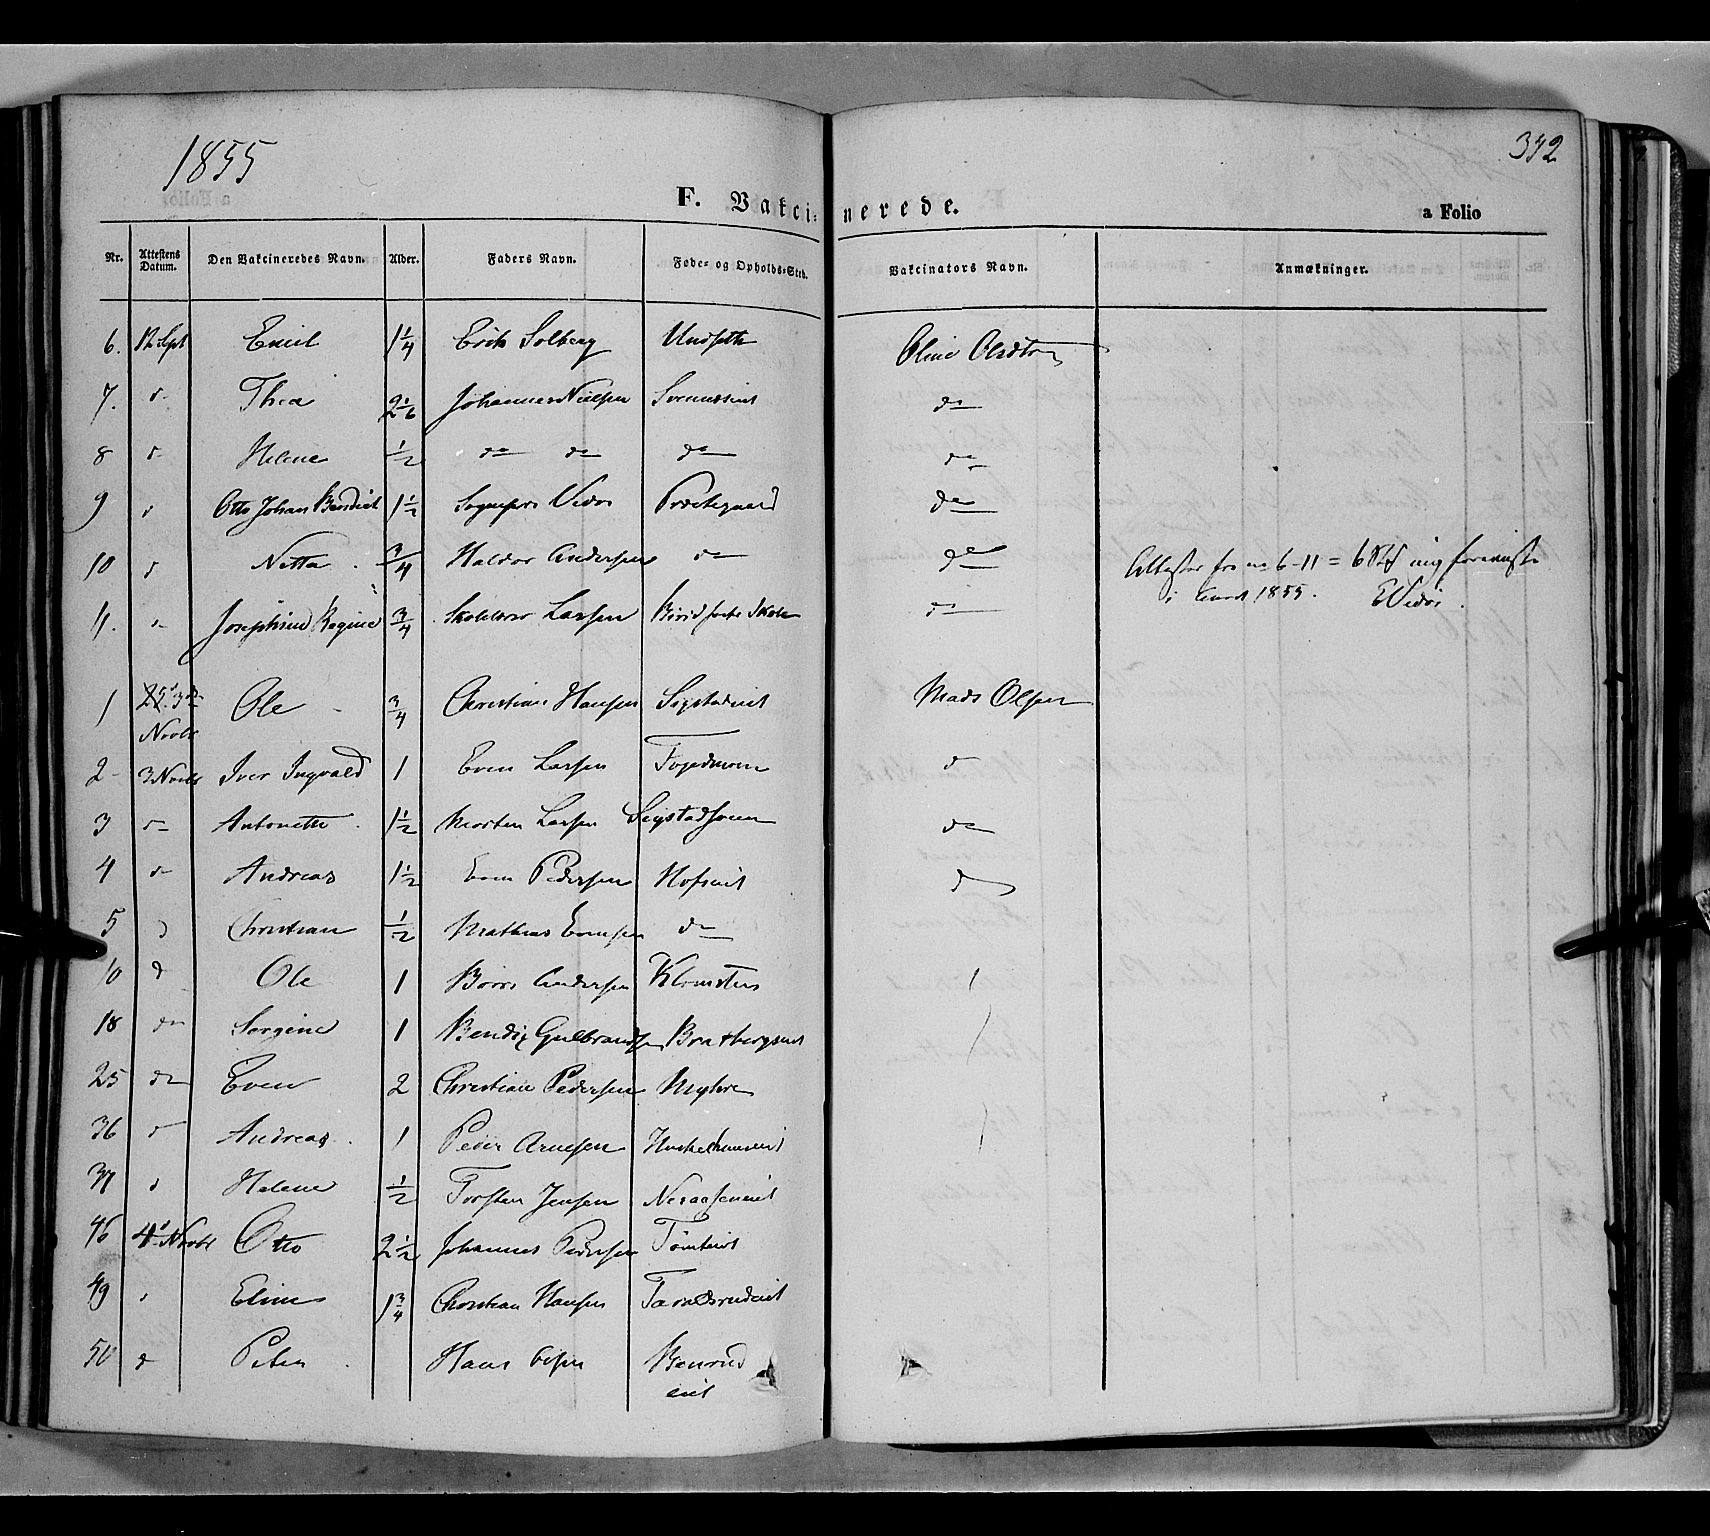 1855
342
F. Vakci-
nerede.
a Folio
Nr. Attestens Datum. Den Vakcineredes Navn. Alder. Faders Navn. Føde- og Opholds-Sted. Vakcinators Navn. Anmærkninger.
6. 12 Sept Emil 1 1/4 Erik Solberg Undseth Oline Olsdtr
7. d- Thea 2 1/6 Johannes Nielsen do
8 d- Helene 1/2 do do do do
9 d Otto Johan Bendict 1 1/2 Sognepr: Vedø Præstegaard do
10 d Netta 3/4 Haldor Andersen do do
Attester fra no 6-11 = 6 Stk mig foreviist
i 1855. EVedø.
11. d- Josephine Regine 3/4 Skolelærer Larsen Skole do
1 3die Novbr Ole 3/4 Christian Hansen Sigstadeiet Mads Olsen
2- 3 Novbr Iver Ingvald 1 Even Larsen d
3 d- Antonette 1 1/2 Morten Larsen do
4 d- Andreas 1 1/2 Even Pedersen Hofseiet d
5 d Christian 1/2 Mathias Evensen do
10 d Ole 1 Børre Andersen Klomsten
18 do Sørgine 1 Bendix Gulbrandsen Bratbergseiet
25 do Even 2 Christian Pedersen Myhre
36 d Andreas 1 Peder Arnesen
37 d Helene 1/2 Torsten Jensen
46 4de Novbr Otto 2 1/2 Johannes Pedersen Tømteeiet
49 d Eline 1 3/4 Christian Hansen
50 d Peter Hans Olsen Benrud
eiet